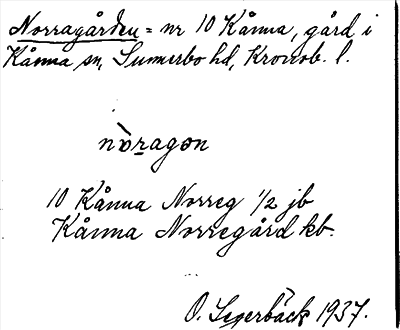 Norragården = nr 10 Kånna, gård i
Kånna sn, Sunnerbo hd, Kronob. l.
nòragon
10 Kånna Norreg 1/2 jb
Kånna Norregård kb.
O. Segerbäck 1937.